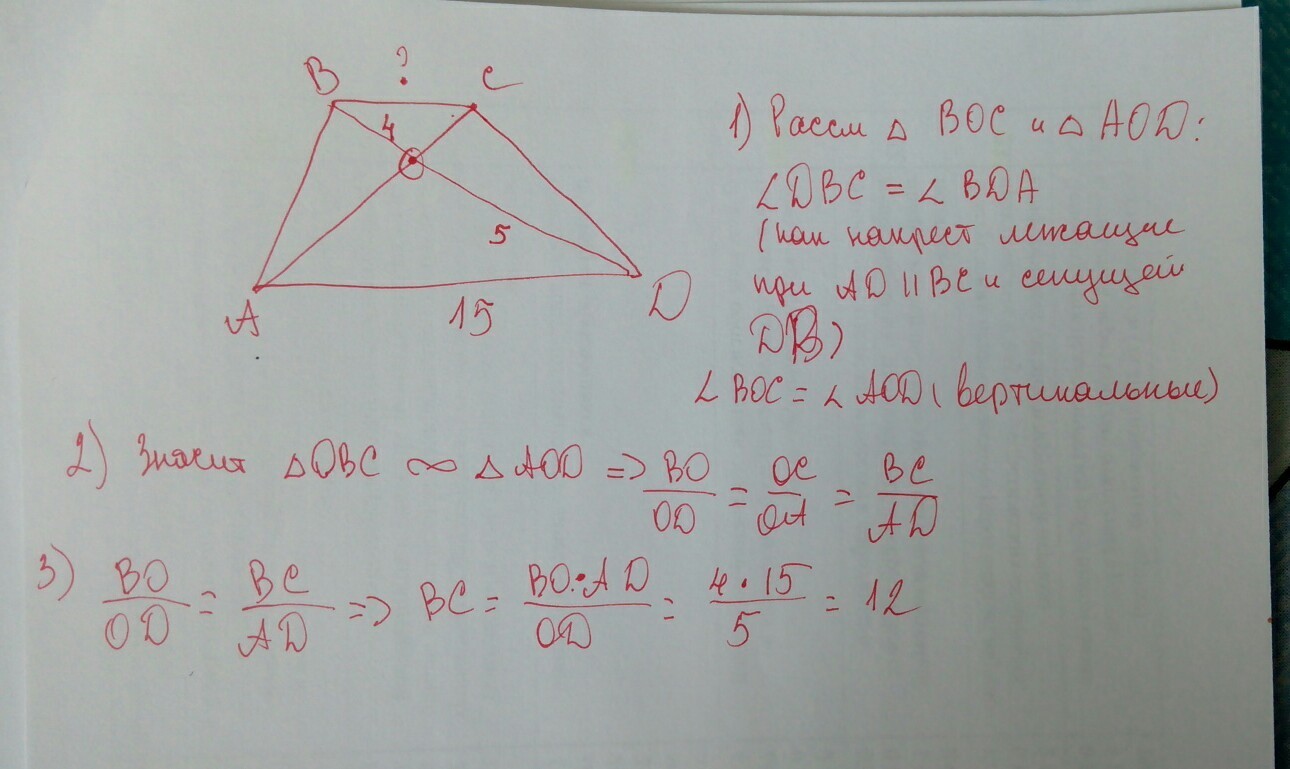 B ? C
4
5
A 15 D
1) Рассм △ BOC и △ AOD:
∠DBC = ∠BDA
(как накрест лежащие
при AD || BC и секущей
DB)
∠BOC = ∠AOD (вертикальные)
2) Значит △OBC ∞ △AOD => BO/OD = OC/OA = BC/AD
3) BO/OD = BC/AD => BC = BO·AD/OD = 4·15/5 = 12